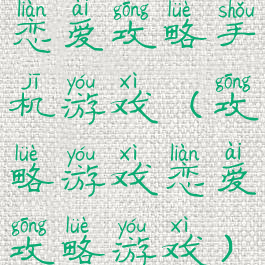 liàn ài gōng lüè shǒu
恋爱攻略手
jī yóu xì gōng
机游戏（攻
lüè yóu xì liàn ài
略游戏恋爱
gōng lüè yóu xì
攻略游戏）